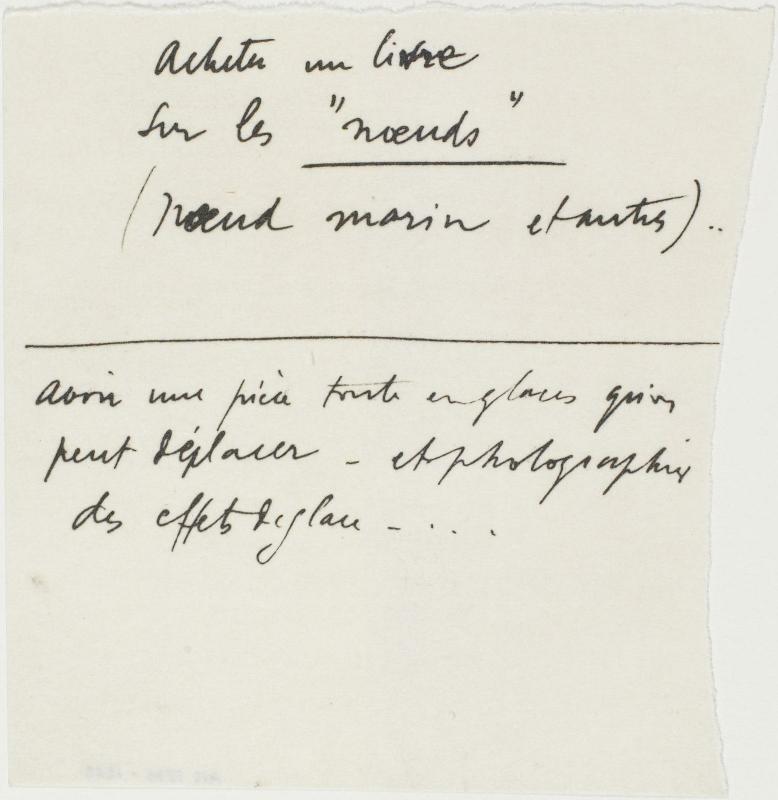 Acheter un livre
sur les "nœuds"
(nœud marin et autres)..
avoir une pièce toute en glaces qu'on
peut déplacer - et photographier
des effets de glace - ....